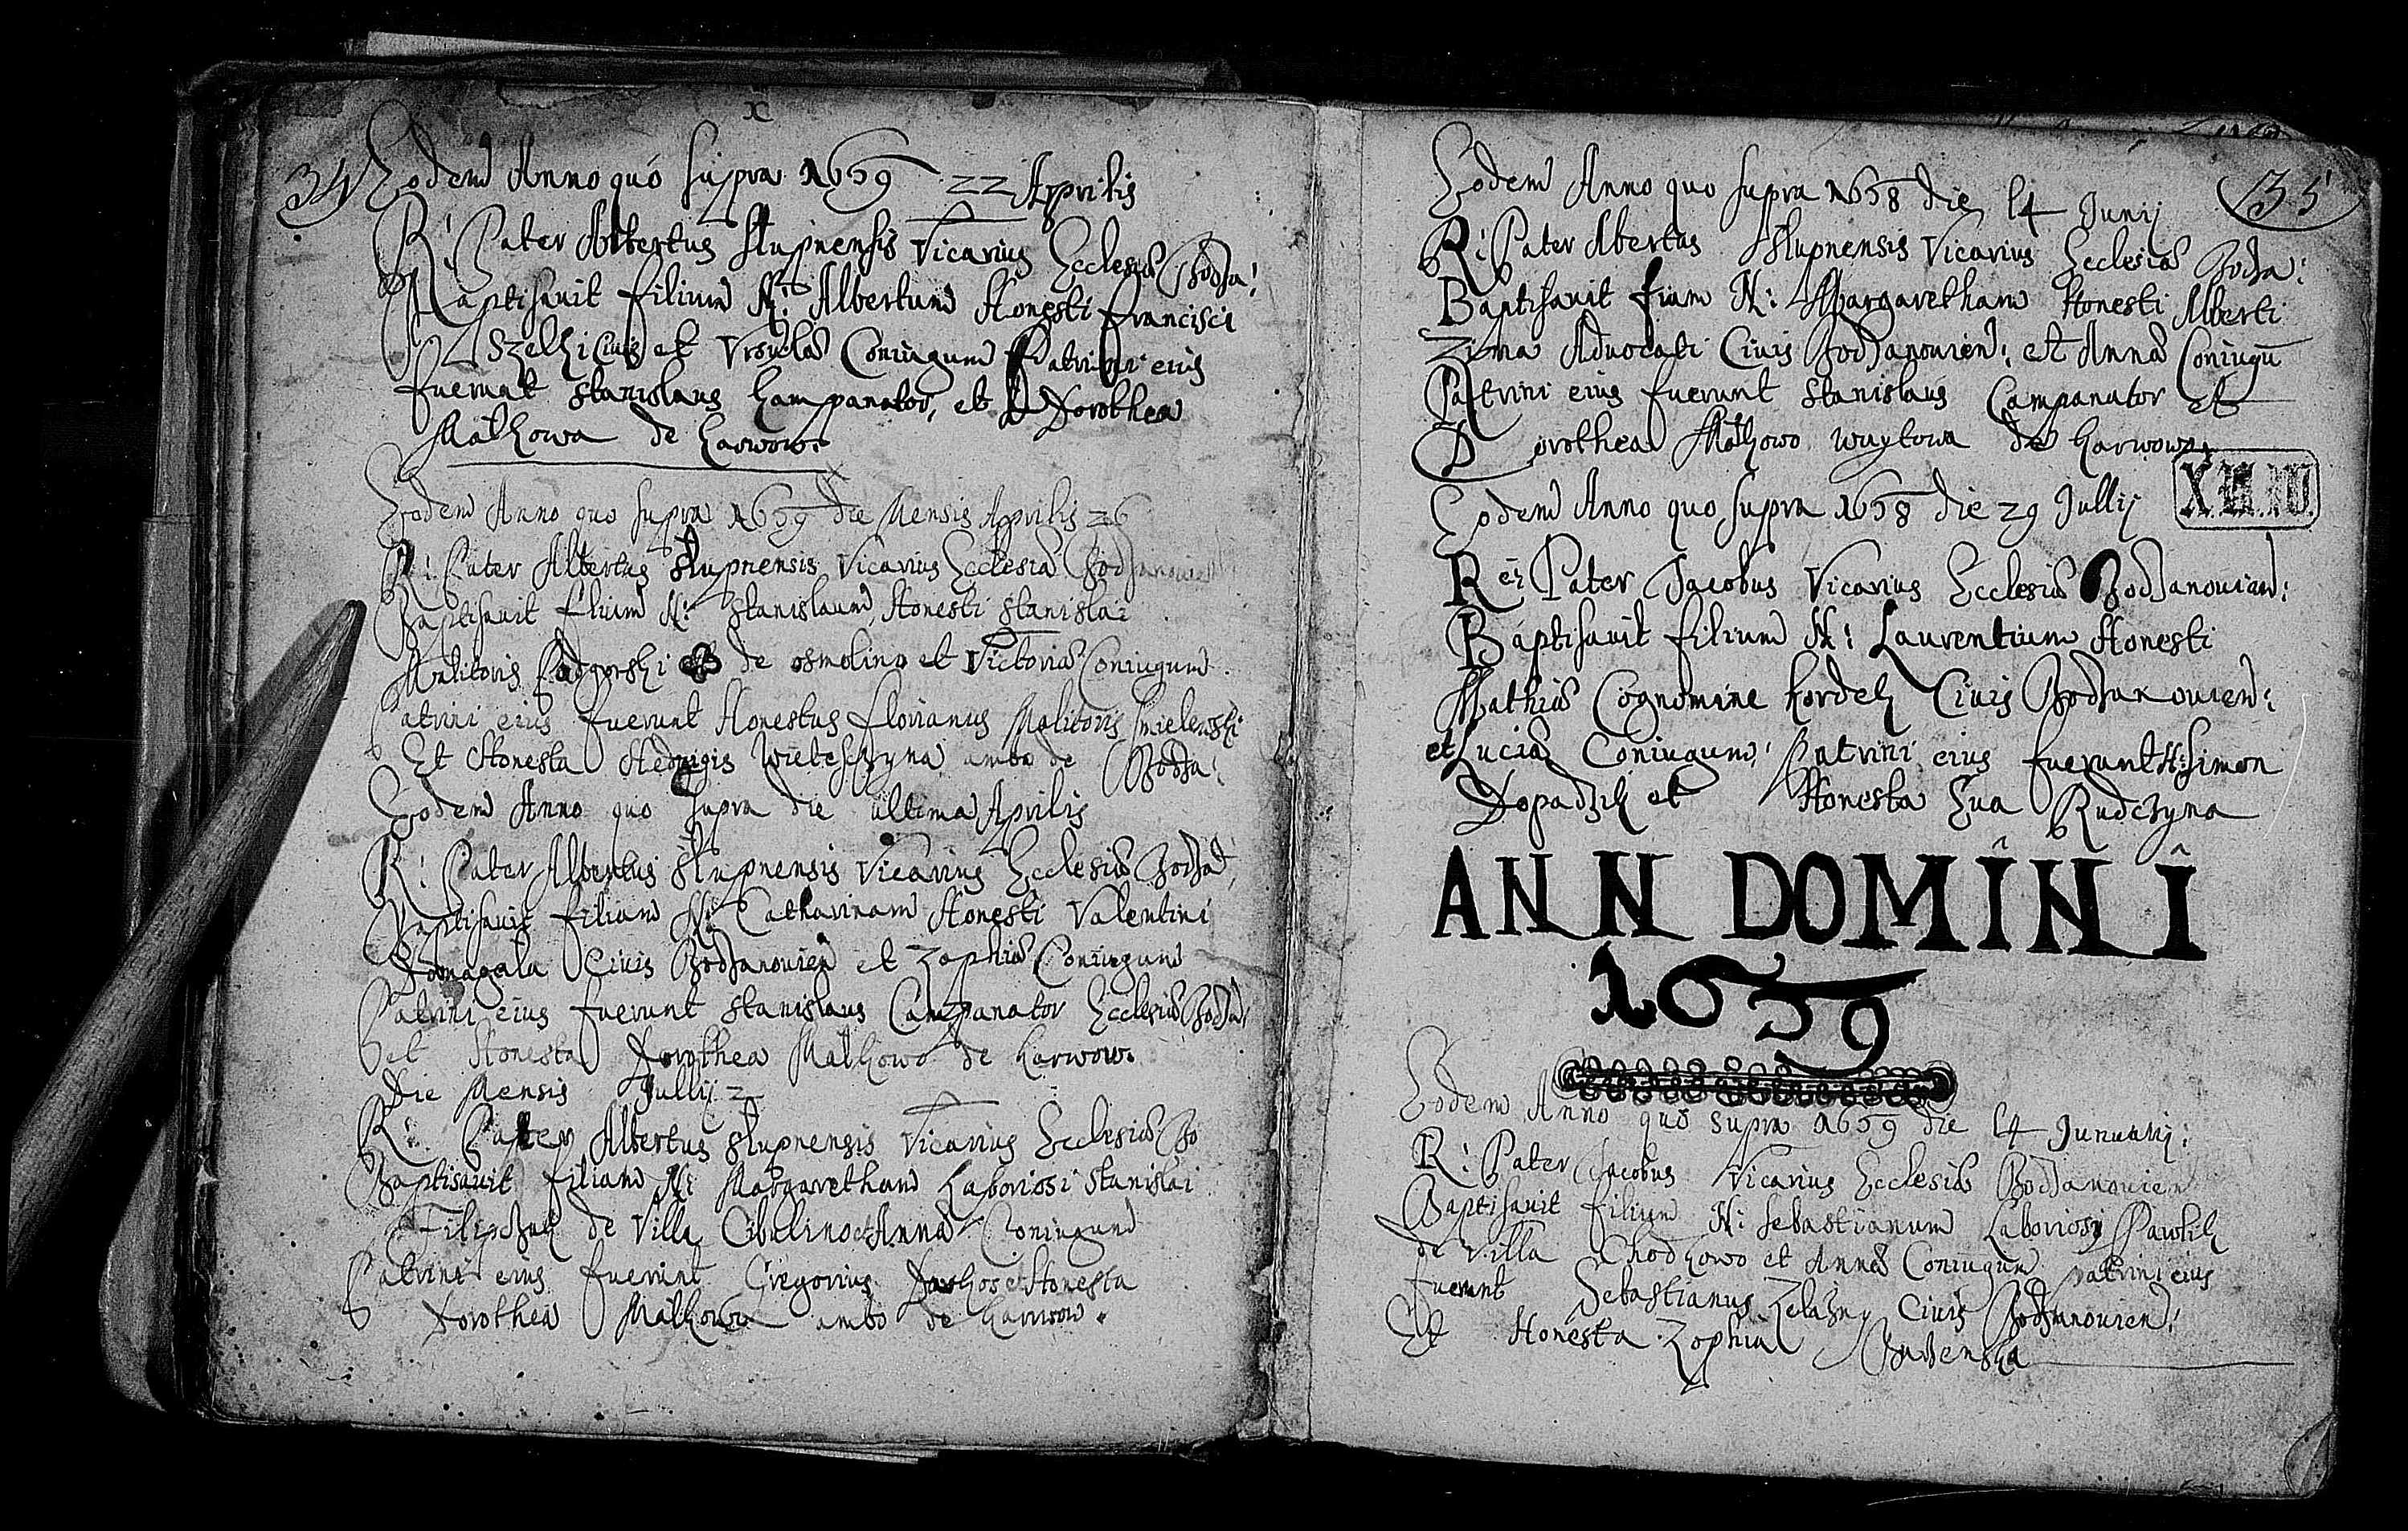 34
Eodem Anno quó supra 1639 22 Apprilis
R: Pater Albertus Slupnensis Vicarius Ecclesiæ Bodza:
Baptisauit filium N: Albertum Honesti Francisci
Szelki Ciuis et Vrsulæ Coniugum Patrini eius
fuerunt Stanislaus Kampanator, et Dorothea
Mathowa de Karwow.
Eodem Anno quo supra 1639 die Mensis Apprilis 26
R: Pater Albertus Slupnensis Vicarius Ecclesia Bodzanouien
Baptisauit filium N: Stanislaum, Honesti Stanislai
Molitoris Podgorski de osmolino et Victoriæ Coniugum
Patrini eius fuerunt Honestus Florianus Molitoris
Et Honesta Hedvigis ambo de Bodza:
Eodem Anno quo supra die ultima Aprilis
R: Pater Albertus Slupnensis Vicarius Ecclesiæ Bodza:
Baptisauit filiam N: Catharinam Honesti Valentini
Domagala Ciuis Bodzanouien et Zophiæ Coniugum
Patrini eius fuerunt Stanislaus Campanator Ecclesiæ Bodza:
et Honesta Dorothea Mathowo de Karwow.
Die Mensis Jullij 2
R: Pater Albertus Slupnensis Vicarius Ecclesiæ Bo
Baptisauit filiam N: Margaretham Laboriosi Stanislai
de Villa Cibulino et Annæ Coniugum
Patrini eius fuerunt Gregorius et Honesta
Dorothea Mathowa ambo de Karwow.
35
Eodem Anno quo supra 1638 die 14 Junij
R: Pater Abertus Slupnensis Vicarius Ecclesiæ Bodza:
Baptisauit fiam N: Margaretham Honesti Alberti
Zima Aduocati Ciuis Bodzanouien: et Annæ Coniugū
Patrini eius fuerunt Stanislaus Campanator et
Dorothea Mathowo wuytowa de Karwowa
Eodem Anno quo supra 1638 die 29 Jullij
X.II.IV.
Rei Pater Jacobus Vicarius Ecclesiæ Bodzanouien:
Baptisauit filium N: Laurentium Honesti
Mathiæ Cognomine Kordek Ciuis Bodzanouien:
et Luciæ Coniugum, Patrini eius fuerunt H: Simon
Dopadzik et Honesta Eua Rudczyna
ANN DOMINI
1639
Eodem Anno quó supra 1639 die 14 Junuarij:
R: Pater Jacobus Vicarius Ecclesiæ Bodzanouien
Baptisauit filium N: Sebastianum Laboriosi Pawlik
de Villa Chodkowo et Annæ Coniugum patrini eius
fuerunt Sebastianus Zelazny Ciuis Bodzanouien:
Et Honesta Zophia